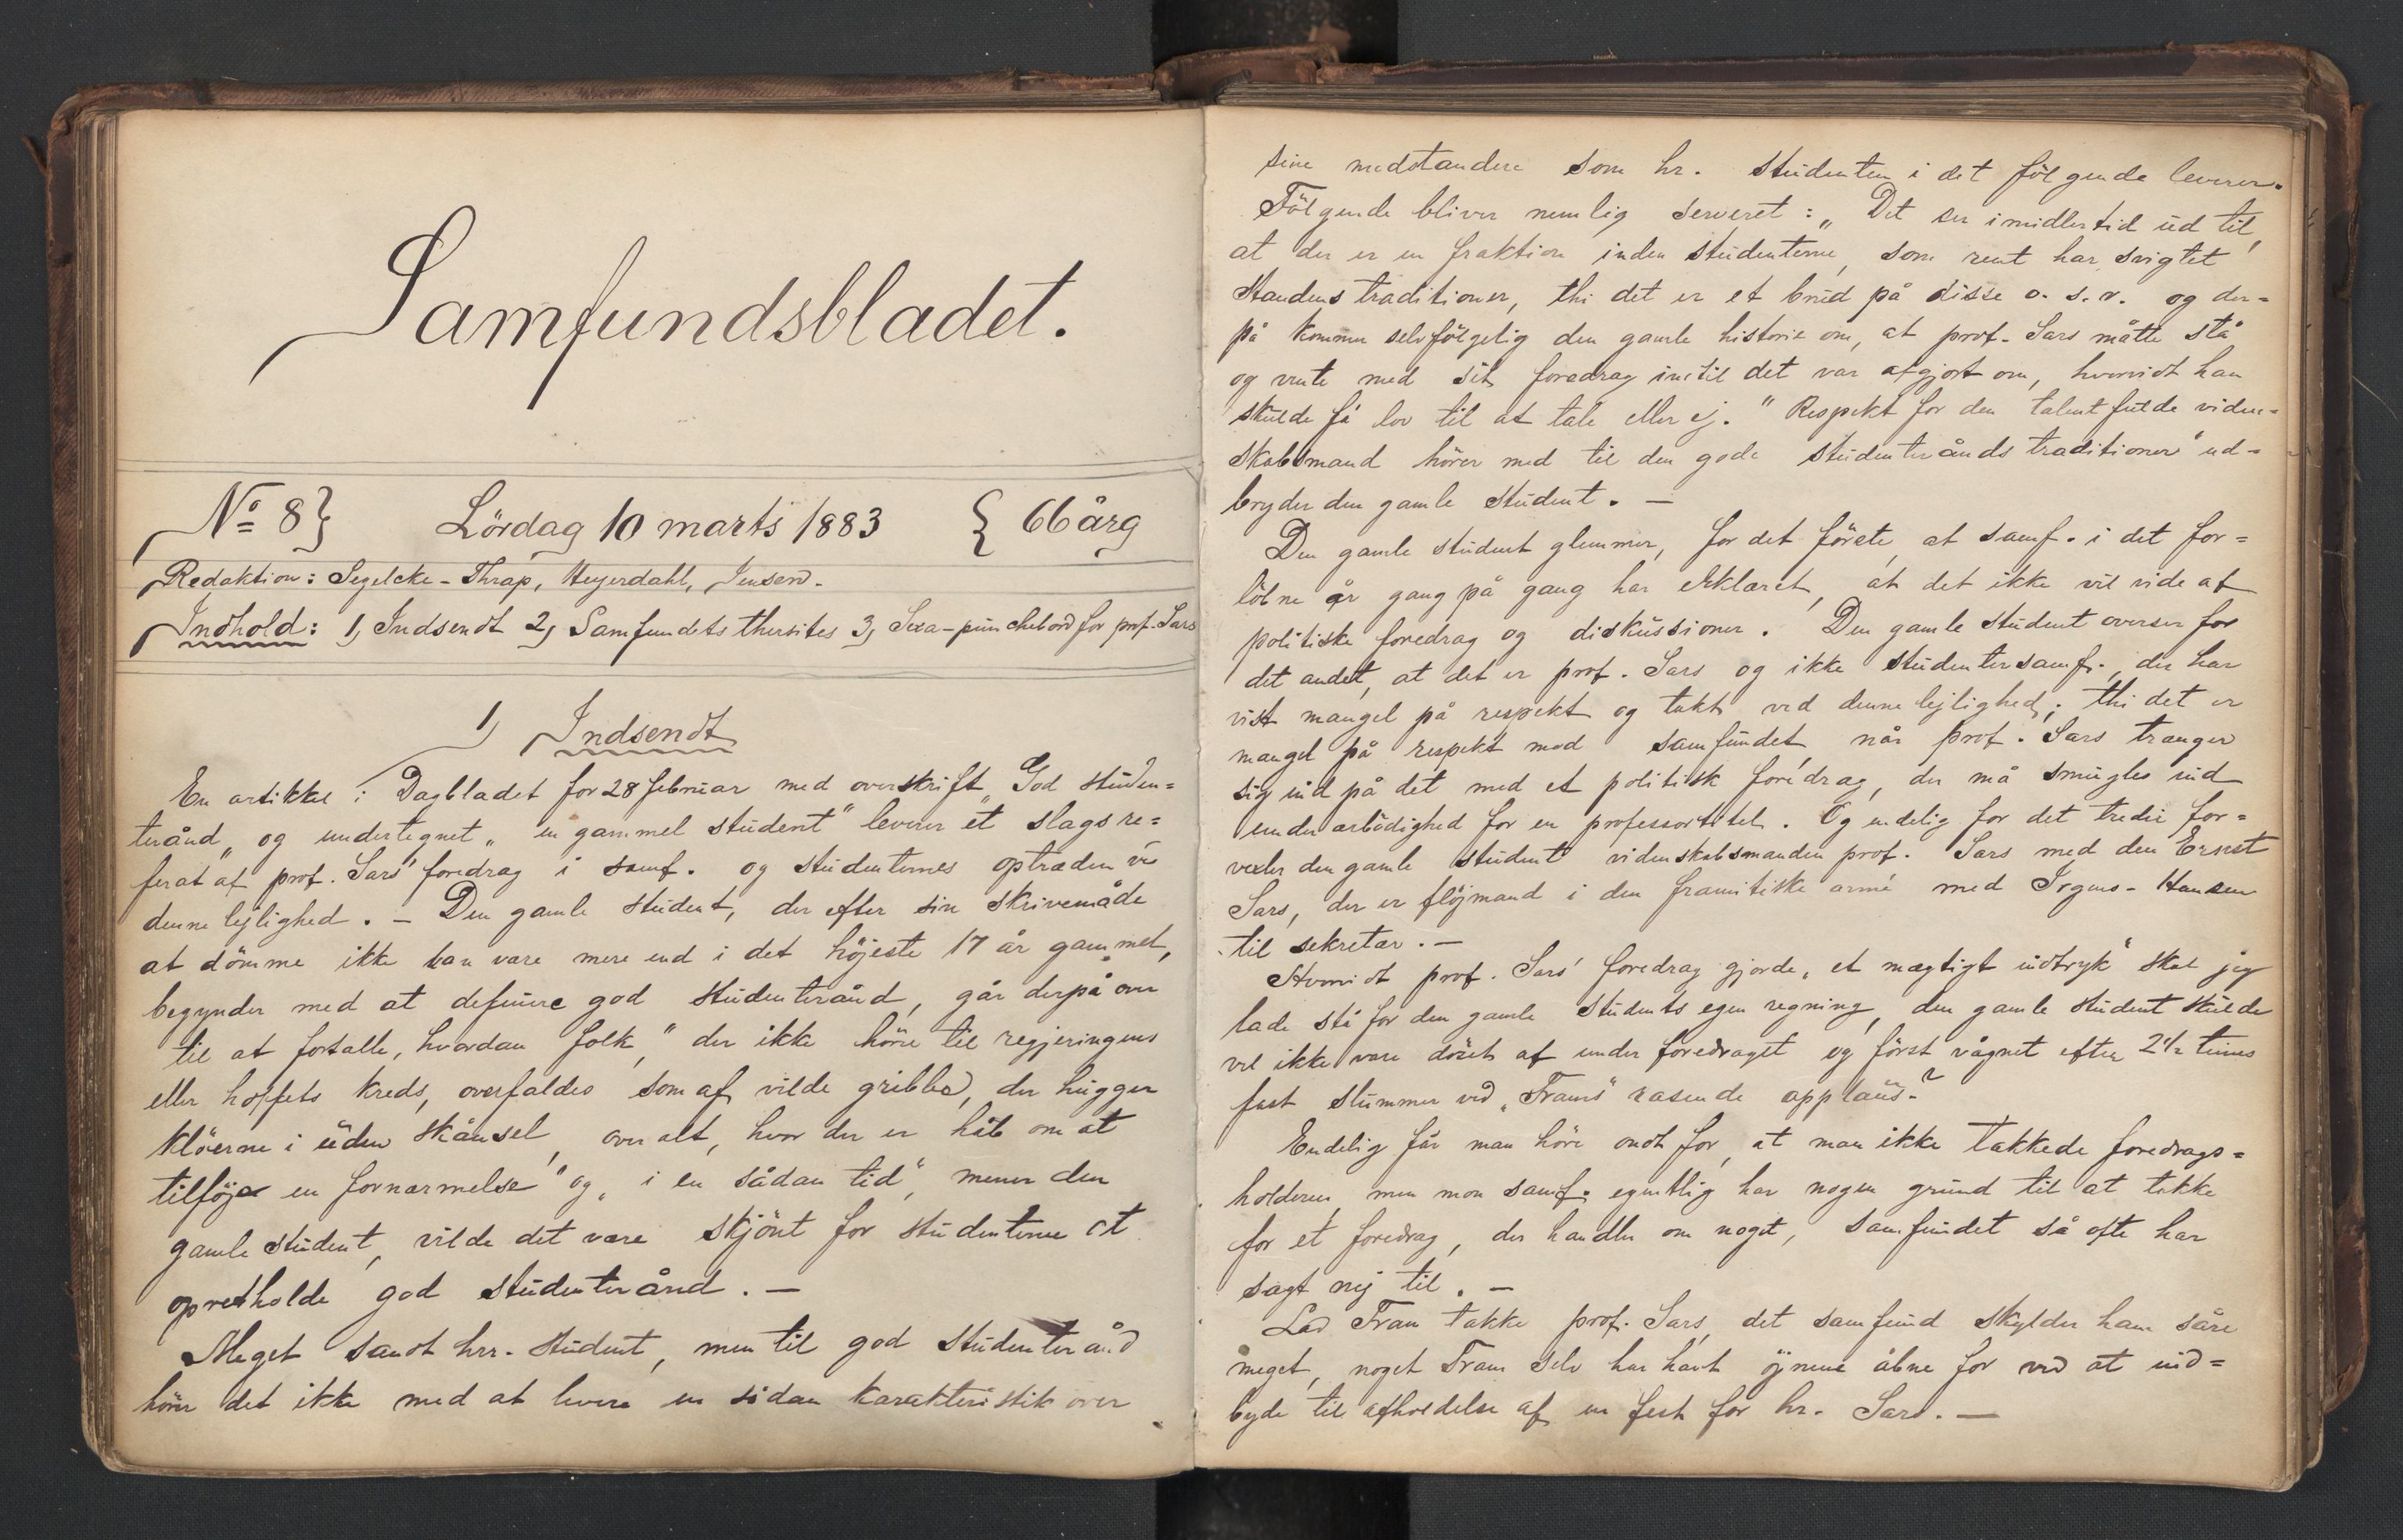 Samfundsbladet.
No 8} Lördag 10 marts 1883 { 66 årg
Redaktion: Segelcke-Thrap, Heyerdahl, Jensen.
Indhold: 1, Indsendt 2, Samfundets thersites 3, Sexa-punchebord for prof. Sars
1, Indsendt
En artikkel i Dagbladet for 28 februar med overskrift „God studen=
terånd„ og undertegnet „en gammel student" leverer et slags re=
ferat af prof. Sars' foredrag i samf. og studenternes optræden ve
denne lejlighed. – Den gamle student, der efter sin skrivemåde
at dömme ikke kan være mere end i det höjeste 17 år gammel,
begynder med at definere god studenterånd, går derpå over
til at fortælle, hvordan folk, "der ikke höre til regjeringens
eller hoffets kreds, overfaldes som af vilde gribbe, der hugger
klöerne i uden skånsel, over alt, hvor der er håb om at
tilföje en fornærmelse" og „i en sådan tid", mener den
gamle student, vilde det være skjönt for studenterne at
opretholde god studenterånd. –
Meget sandt hrr. student, men til god studenterånd
hörer det ikke med at levere en sådan karakteristik over
sine modstandere som hr. studenten i det fölgende leverer.
Fölgende bliver nemlig serveret: „Det ser imidlertid ud til,
at der er en fraktion inden studenterne, som rent har svigtet
standens traditioner, thi det er et brud på disse o. s. v. og der=
på kommer selvfölgelig den gamle historie om, at prof. Sars måtte stå
og vente med sit foredrag indtil det var afgjort om, hvorvidt han
skulde få lov til at tale eller ej. "Respekt for den talentfulde viden=
skabsmand hörer med til den gode studenterånds traditioner" ud=
bryder den gamle student. –
Den gamle student glemmer, for det förste, at samf. i det for=
löbne år gang på gang har erklæret, at det ikke vil vide af
politiske foredrag og diskussioner. Den gamle student overser for
det andet, at det er prof. Sars og ikke studentersamf., der har
vist mangel på respekt og takt ved denne lejlighed; thi det er
mangel på respekt mod samfundet, når prof. Sars trænger
sig ind på det med et politisk foredrag, der må smugles ind
under ærbödighed for en professortitel. Og endelig for det tredie for=
vexler den gamle student videnskabsmanden prof. Sars med den Ernst
Sars, der er flöjmand i den framitiske armé med Irgens-Hansen
til sekretær. –
Hvorvidt prof. Sars' foredrag gjorde „et mægtigt indtryk" skal jeg
lade stå for den gamle students egen regning, den gamle student skulde
vel ikke være döset af under foredraget og först vågnet efter 2½ times
fast slummer ved „Frams" rasende applaus?
Endelig får man höre ondt for, at man ikke takkede foredrags=
holderen, men mon samf. egentlig har nogen grund til at takke
for et foredrag, der handler om noget, samfundet så ofte har
sagt nej til. –
Lad Fram takke prof. Sars, det samfund skylder ham såre
meget, noget Fram selv har havt öjnene åbne for ved at ind=
byde til afholdelse af en fest for hr. Sars. –